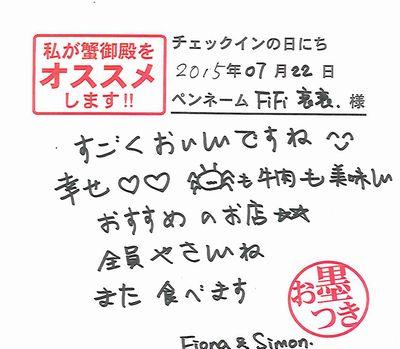 私が蟹御殿を
オススメ
します!!
チェックインの日にち
2015年07月22日
ペンネーム FiFi 衰衰. 様
すごくおいしいですね
幸せ♡♡ も牛肉も美味しい
おすすめのお店☆☆
全員やさしいね
また食べます
お墨つき
Fiona & Simon.